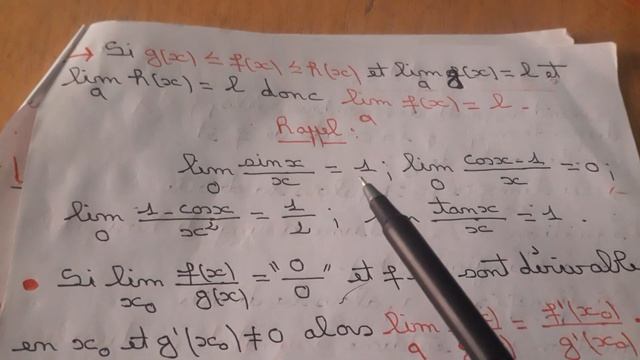 → Si g(x) ≤ f(x) ≤ h(x) et lim g(x) = l et
a
lim h(x) = l donc lim f(x) = l -
a a
Rappel :
lim sinx/x = 1 ; lim cosx-1/x = 0 ;
0 0
lim 1-cosx/x² = 1/2 ; tanx/x = 1 .
0
• Si lim f(x)/g(x) = "0/0" et f sont dérivable
x₀
en x₀ et g'(x₀) ≠ 0 alors lim = f'(x₀)/g'(x₀) .